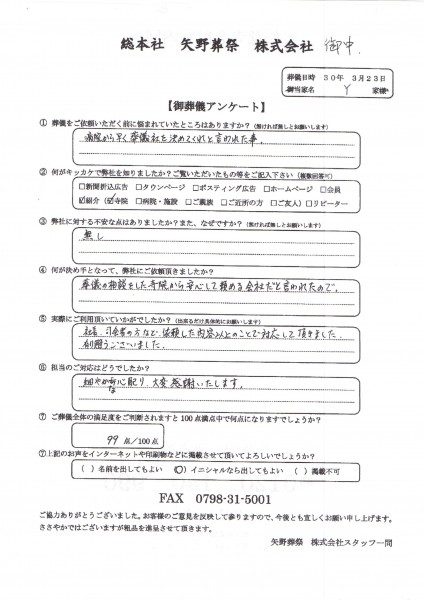 総本社 矢野葬祭 株式会社 御中.
葬儀日時 30年 3月23日
御当家名 Y 家様
【御葬儀アンケート】
① 葬儀をご依頼いただく前に悩まれていたところはありますか?(無ければ無しとお願いします)
病院から早く葬儀社を決めてくれと言われた事。
② 何がキッカケで弊社を知りましたか?ご覧いただいたもの等をご記入下さい(複数回答可)
□新聞折込広告 □タウンページ □ポスティング広告 □ホームページ □会員
☑紹介 ☑寺院 □病院・施設 □ご親族 □ご近所の方 □ご友人) □リピーター
③ 弊社に対する不安な点はありましたか?また、なぜですか?(無ければ無しとお願いします)
無し
④ 何が決め手となって、弊社にご依頼頂きましたか?
葬儀の相談をした寺院から安心して頼める会社だと言われたので。
⑤ 実際にご利用頂いていかがでしたか?(出来るだけ具体的にお願いします)
社長、司会者の方など、依頼した内容以上のことで対応して頂きました。
有難うございました。
⑥ 担当のご対応はどうでしたか?
細やかな心配り、大変感謝いたします。
⑦ ご葬儀全体の満足度をご判断されますと100点満点中で何点になりますでしょうか?
99 点/100点
⑦上記のお声をインターネットや印刷物などに掲載させて頂いてよろしいでしょうか?
( )名前を出してもよい (○)イニシャルなら出してもよい ( )掲載不可
FAX 0798-31-5001
ご協力ありがとうございました。お客様のご意見を反映して参りますので、今後とも宜しくお願い申し上げます。
ささやかではございますが粗品を進呈させて頂きます。
矢野葬祭 株式会社スタッフ一同